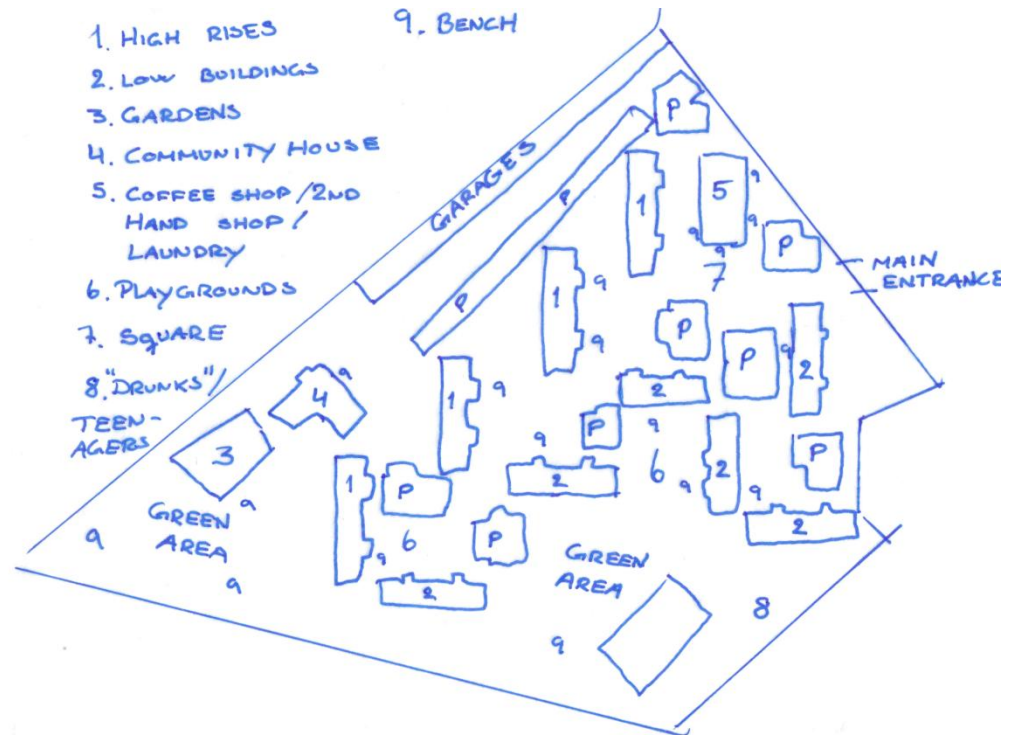 1. HIGH RISES
2. LOW BUILDINGS
3. GARDENS
4. COMMUNITY HOUSE
5. COFFEE SHOP/2ND
HAND SHOP/
LAUNDRY
6. PLAYGROUNDS
7. SQUARE
8. "DRUNKS"/
TEEN-
AGERS
9. BENCH
P
GARAGES
P
1
5
9
9
9
9
P
7
MAIN
ENTRANCE
1
9
P
P
9
P
9
2
9
4
1
9
2
P
9
9
P
3
2
6
9
2
9
1
P
9
GREEN
AREA
9
6
P
2
9
9
GREEN
AREA
2
8
9